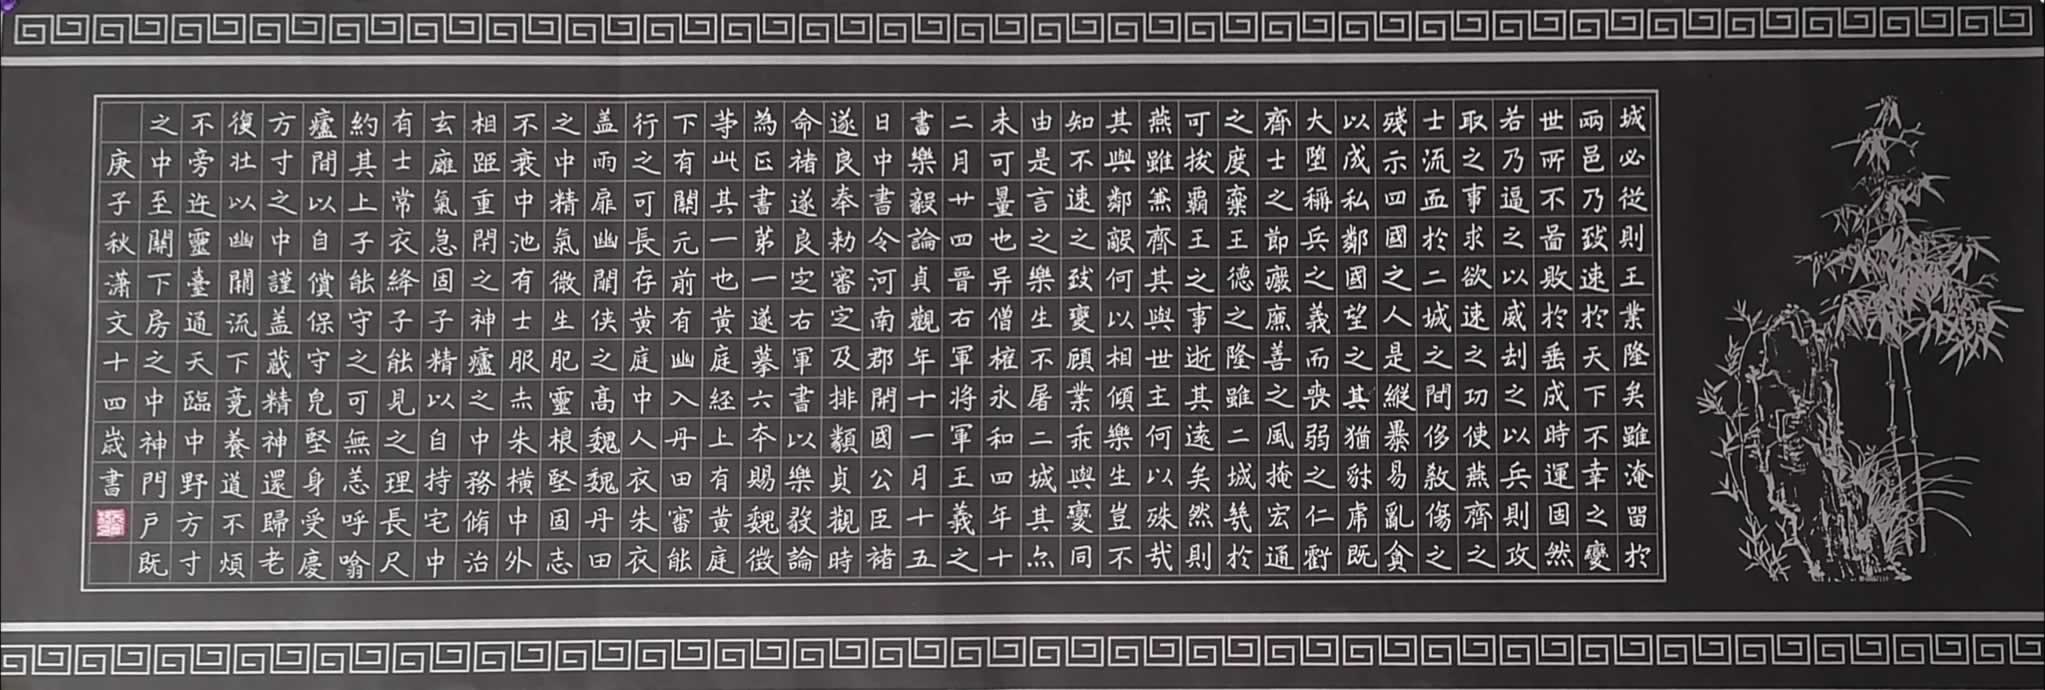 城必從則王業隆矣雖淹留於
兩邑乃致速於天下不幸之變
世所不啚敗於垂成時運固然
若乃逼之以威刦之以兵則攻
取之事求欲速之功使燕齊之
士流血於二城之間侈敎傷之
殘示四國之人是縱暴易亂貪
以成私鄰國望之其猶豺虎既
大墮稱兵之義而喪弱之仁虧
齊士之節廢廉善之風掩宏通
之度棄王德之隆雖二城幾於
可拔霸王之事逝其遠矣然則
燕雖兼齊其與世主何以殊哉
其與鄰敵何以相傾樂生豈不
知不速之致變顧業乖與變同
由是言之樂生不屠二城其尒
未可量也异僧權永和四年十
二月廿四晋右軍将軍王義之
書樂毅論貞觀年十一月十五
日中書令河南郡開國公臣褚
遂良奉勅審定及排類貞觀時
命褚遂良定右軍書以樂毅論
為正書第一遂摹六本賜魏徵
等此其一也黄庭経上有黄庭
下有關元前有幽入丹田審能
行之可長存黄庭中人衣朱衣
盖雨扉幽關侠之高魏魏丹田
之中精氣微生肥靈根堅固志
不衰中池有士服赤朱橫中外
相距重閇之神廬之中務脩治
玄廱氣急固子精以自持宅中
有士常衣絳子能見之理長尺
約其上子能守之可無恙呼噏
廬間以自償保守皃堅身受慶
方寸之中謹盖藏精神還歸老
復壮以幽關流下竟養道不煩
不旁迕靈臺通天臨中野方寸
之中至關下房之中神門戶既
庚子秋潇文十四歳書